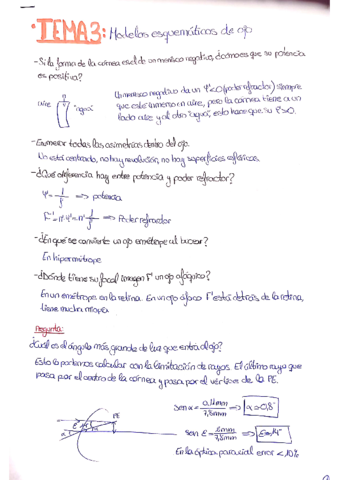 TEMA 3: Modelos esquemáticos de ojo
- Si la forma de la córnea es el de un menisco negativo, ¿cómo es que su potencia
es positiva?
Un menisco negativo da un Ψ<0 (poder refractor) siempre
que esté inmerso en aire, pero la córnea tiene a un
lado aire y al otro "agua", esto hace que su Ψ>0.
aire
"agua"
- Enumerar todas las asimetrías dentro del ojo.
No está centrado, no hay revolución, no hay superficies esféricas.
- ¿Qué diferencia hay entre potencia y poder refractor?
Ψ = 1/f ⇒ potencia
⇒ Poder refractor
- ¿En qué se convierte un ojo emétrope al bucear?
En hipermétrope
- ¿Dónde tiene su focal imagen F' un ojo afáquico?
En un emétrope en la retina. En un ojo áfaco F' está detrás de la retina,
tiene mucha miopía.
Pregunta:
¿Cuál es el ángulo más grande de luz que entra al ojo?
Esto lo podemos calcular con la limitación de rayos. El último rayo que
pasa por el centro de la córnea y pasa por el vértice de la PE.
PE
sen α = 0,11mm/7,8mm ⇒ α=0,8°
sen ε = 2mm/7,8mm ⇒ ε=14°
En la óptica paraxial error <10%